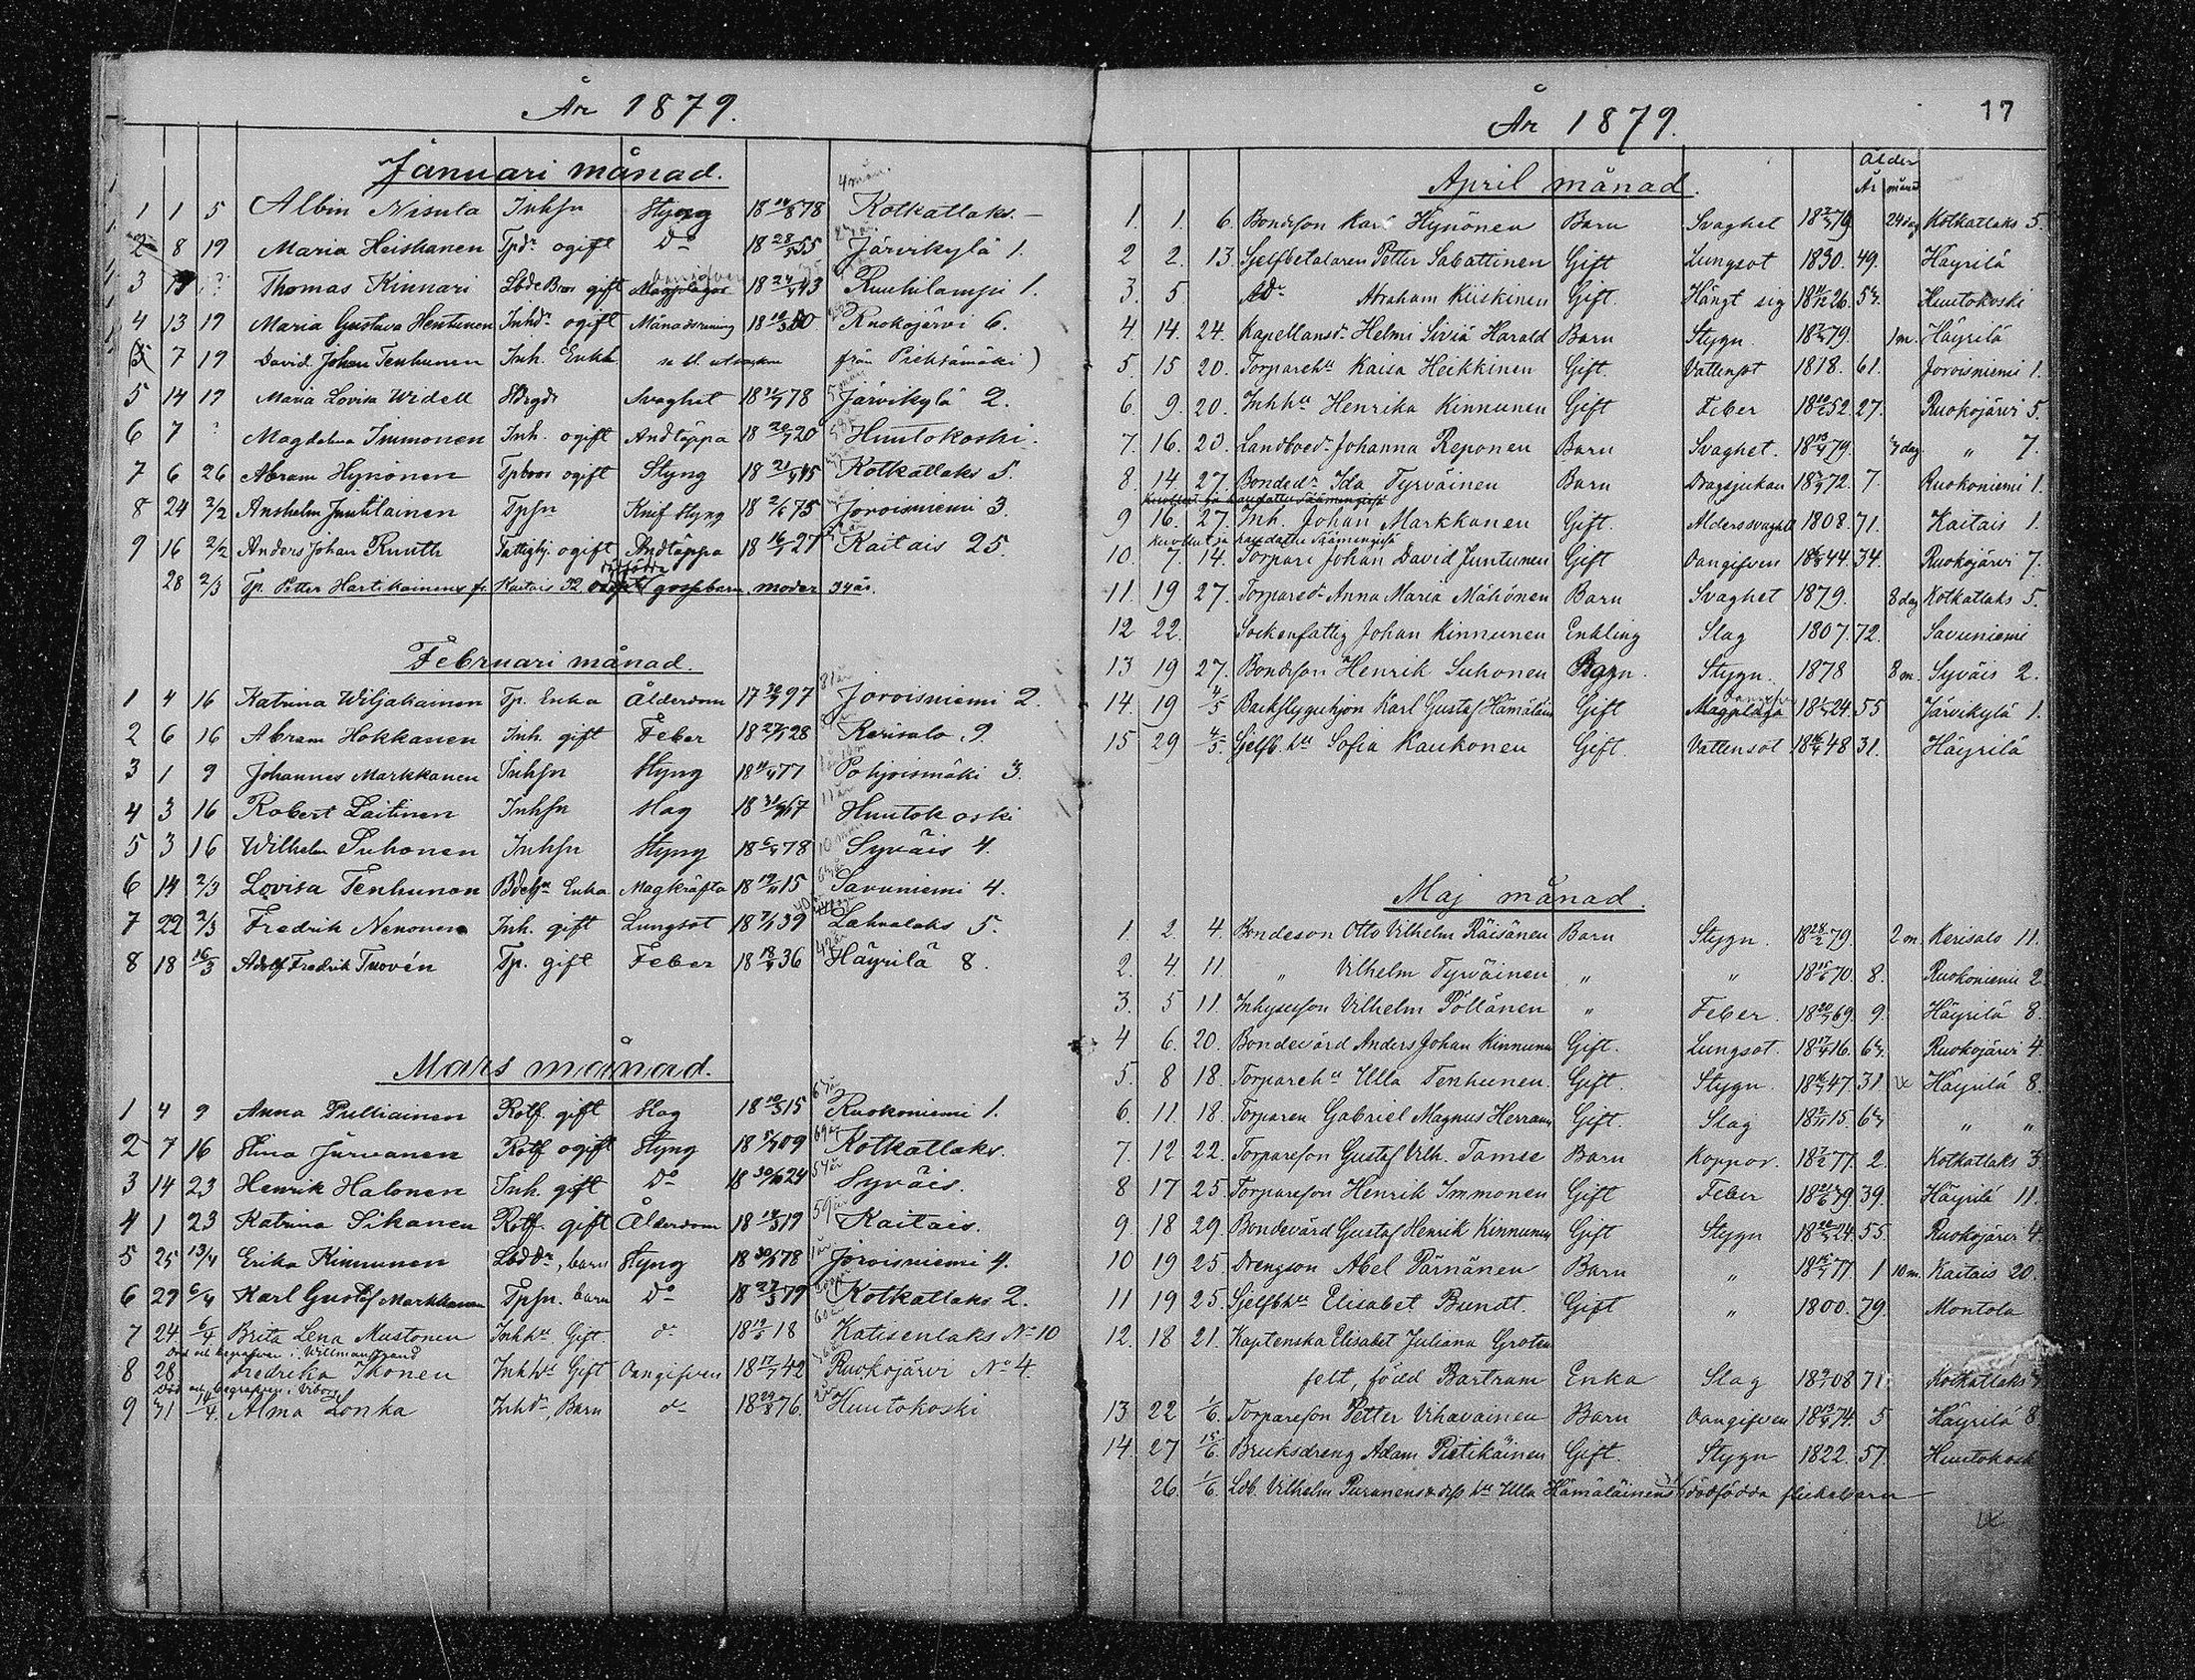 År 1879.
Januari månad.
4 mån.
1 1 5 Albin Nisula Inhsn Styng 18 10/8 78 Kotkatlaks. –
2 8 19 Maria Heiskanen Tpdr ogift Do 18 28/ 55 Järvikylä 1.
3 ? Thomas Kinnari Lbde Bror gift 18 24/ 43 Ruuhilampi 1.
4 13 19 Maria Gustava Hentunen Inhdr ogift 18 Ruokojärvi 6.
5 7 19 David Johan Tenhunen Inh. Enkl från Pieksämäki )
5 14 19 Maria Lovisa Widell Svaghet 18 78 Järvikylä 2.
6 7 ? Magdalena Immonen Inh. ogift Andtäppa 18 20/7 20 Huutokoski.
7 6 26 Abram Hynönen Tpbror ogift Styng 18 21/ 45 Kotkatlaks 5.
8 24 2/2 Anshelm Juntilainen Tpsn Knif Styng 18 2/6 75 Joroisniemi 3.
9 16 2/2 Anders Johan Ruuth Fattighj. ogift Andtäppa 18 16/ 27 Kaitais 25.
dödfödda
28 2/3 Tp. Petter Hartikainens fr. Kaitais 12 gossebarn. moder 34 år.
Februari månad.
1 4 16 Katrina Wiljakainen Tp. Enka Ålderdom 17 30/ 97 81 år Joroisniemi 2.
2 6 16 Abram Hokkanen Inh. gift Feber 18 27/ 28 Kerisalo 9.
3 1 9 Johannes Markkanen Inhsn Styng 18 11/4 77 Pohjoismäki 3.
4 3 16 Robert Laitinen Inhsn Slag 18 31/ 67 11 år Huutokoski
5 3 16 Wilhelm Suhonen Inhsn Styng 18 6/4 78 10 mån Syväis 4.
6 14 2/3 Lovisa Tenhunen Enka Magkräfta 18 19/11 15 Savuniemi 4.
7 22 2/3 Fredrik Nenonen Inh. gift Lungsot 18 7/1 39 Lahnalaks 5.
8 18 16/3 Adolf Fredrik Tuovén Tp. gift Feber 18 18/9 36 42 år Häyrilä 8.
Mars månad.
1 4 9 Anna Pulliainen Rotf. gift Slag 18 10/3 15 Ruokoniemi 1.
2 7 16 Stina Jurvanen Rotf ogift Styng 18 09 69 år Kotkatlaks.
3 14 23 Henrik Halonen Inh. gift Do 18 30/ 24 54 år Syväis.
4 1 23 Katrina Sikanen Rotf. gift Ålderdom 18 14/3 19 59 år Kaitais.
5 25 13/4 Erika Kinnunen Lbddr, barn Styng 18 78 1 år Joroisniemi 4.
6 29 6/4 Karl Gustaf Markkanen Tpsn. barn Do 18 27/3 79 Kotkatlaks 2.
7 24 6/4 Brita Lena Mustonen Inhhu Gift do 18 18 60 år Katisenlaks No 10
Död och begrafven i Willmanstrand
8 28 Fredrika Ikonen Inhhu Gift Oangifven 18 17/7 42 Ruokojärvi No 4.
Död och begrafven i Viborg
9 31 14/4. Alma Lonka Inhdr, Barn do 18 29/8 76. Huutokoski
År 1879.
17
April månad.
Ålder
År månd
1. 1. 6. Bondeson Karl Hynönen Barn Svaghet 18 79 24 dag Kotkatlaks 5.
2 2. 13. Sjelfbetalaren Petter Sabattinen Gift Lungsot 1830. 49. Häyrilä
3. 5 Abraham Kiiskinen Gift. Hängt sig 18 26. 52. Huutokoski
4. 14. 24. Kapellansdr Helmi Siviä Harald Barn Stygn. 18 79. 1 m. Häyrilä
5. 15 20. Torparehu Kaisa Heikkinen Gift. Vattensot 1818. 61. Joroisniemi 1.
6. 9. 20. Inhhu Henrika Kinnunen Gift Feber 18 52. 27. Ruokojärvi 5.
7. 16. 20. Landboedr Johanna Reponen Barn Svaghet. 18 13/4 79. dag " 7.
8. 14. 27. Bondedr Ida Tyrväinen Barn Dragsjukan 18 72. 7. Ruokoniemi 1.
9 16. 27. Inh. Johan Markkanen Gift. Ålderssvaghet 1808. 71. Kaitais 1.
kuollut ja haudattu Säämingissä
10. 7. 14. Torpare Johan David Juntunen Gift Oangifven 18 44. 34. Ruokojärvi 7.
11. 19 27. Torparedr Anna Maria Mähönen Barn Svaghet 1879. 8 dag Kotkatlaks 5.
12 22. Sockenfattig Johan Kinnunen Enkling Slag 1807. 72. Savuniemi
13. 19 27. Bondeson Henrik Suhonen Barn. Stygn. 1878 8 m. Syväis 2.
14. 19 4/5 Backstuguhjon Karl Gustaf Hämäläin Gift Magplåga 18 24. 55 Järvikylä 1.
15 29 4/5. Sjelfb. hu Sofia Kaukonen Gift. Vattensot 18 48 31. Häyrilä
Maj månad.
1. 2. 4. Bondeson Otto Vilhelm Räisänen Barn Stygn. 18 28/2 79. 2 m. Kerisalo 11.
2. 4. 11. " Vilhelm Tyrväinen " " 18 15/6 70. 8. Ruokoniemi 2.
3. 5 11. Inhyseson Vilhelm Pöllänen " Feber. 18 20/ 69. 9. Häyrilä 8.
4 6. 20. Bondevärd Anders Johan Kinnunen Gift. Lungsot. 18 17/4 16. 62. Ruokojärvi 4.
5. 8 18. Torparehu Ulla Tenhunen. Gift. Stygn. 18 16/ 47. 31. Häyrilä 8.
6. 11. 18. Torparen Gabriel Magnus Herranen Gift. Slag 18 15. 63 " "
7. 12 22. Torpareson Gustaf Vilh. Tamse Barn Koppor. 18 77. 2. Kotkatlaks 3.
8 17 25. Torpareson Henrik Immonen Gift Feber 18 21/6 39. 39. Häyrilä 11.
9. 18 29. Bondevärd Gustaf Henrik Kinnunen Gift Stygn 18 24. 55. Ruokojärvi 4.
10 19 25. Drengson Abel Pärnänen Barn " 18 77. 1 10 m. Kaitais 20.
11 19 25. Sjelfbhu Elisabet Bundt. Gift " 1800. 79. Montola
12. 18 21. Kaptenska Elisabet Juliana Groten
felt, född Bartram Enka Slag 18 08 71. Kotkatlaks
13 22 1/6. Torpareson Petter Vihavainen Barn Oangifven 18 13/4 74. 5 Häyrilä 8
14. 27 15/6. Bruksdreng Adam Pietikäinen Gift. Stygn 1822. 57. Huutokosk
26. 1/6. Ldb. Vilhelm Puranens o. dess hu Ulla Hämäläinens dödfödda flickebarn